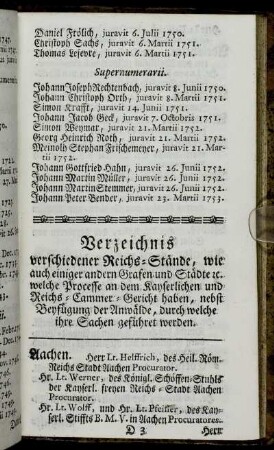 Daniel Frölich, juravit 6. Julii 1750.
Christoph Sachs, juravit 6. Martii 1751.
Thomas Lefevre, juravit 6. Martii 1751.
Supernumerarii.
Johann Joseph Rechtenbach, juravit 8. Junii 1750.
Johann Christoph Orth, juravit 8. Junii 1750.
Simon Krafft, juravit 14. Junii 1751.
Johann Jacob Geck, juravit 7. Octobris 1751.
Simon Weymar, juravit 21. Martii 1752.
Georg Heinrich Roth, juravit 21. Martii 1752.
Meinolh Stephan Frischemeyer, juravit 21. Mar-
tii 1752.
Johann Gottfried Hahn, juravit 26. Junii 1752.
Johann Martin Müller, juravit 26. Junii 1752.
Johann Martin Stemmer, juravit 26. Junii 1752.
Johann Peter Bender, juravit 23. Martii 1753.
Verzeichnis
verschiedener Reichs-Stände, wie
auch einiger andern Grafen und Städte ꝛc.
welche Processe an dem Kayserlichen und
Reichs-Cammer-Gericht haben, nebst
Beyfügung der Anwälde, durch welche
ihre Sachen geführet werden.
Aachen. Herr Lt. Helffrich, des Heil. Röm.
Reichs Stadt Aachen Procurator.
Hr. Lt. Werner, des Königl. Schöffen-Stuhls
der Kayserl. freyen Reichs-Stadt Aachen
Procurator.
Hr. Lt. Wolff, und Hr. Lt. Pfeiffer, des Kay-
serl. Stiffts B. M. V. in Aachen Procuratores.
D 3 Herr